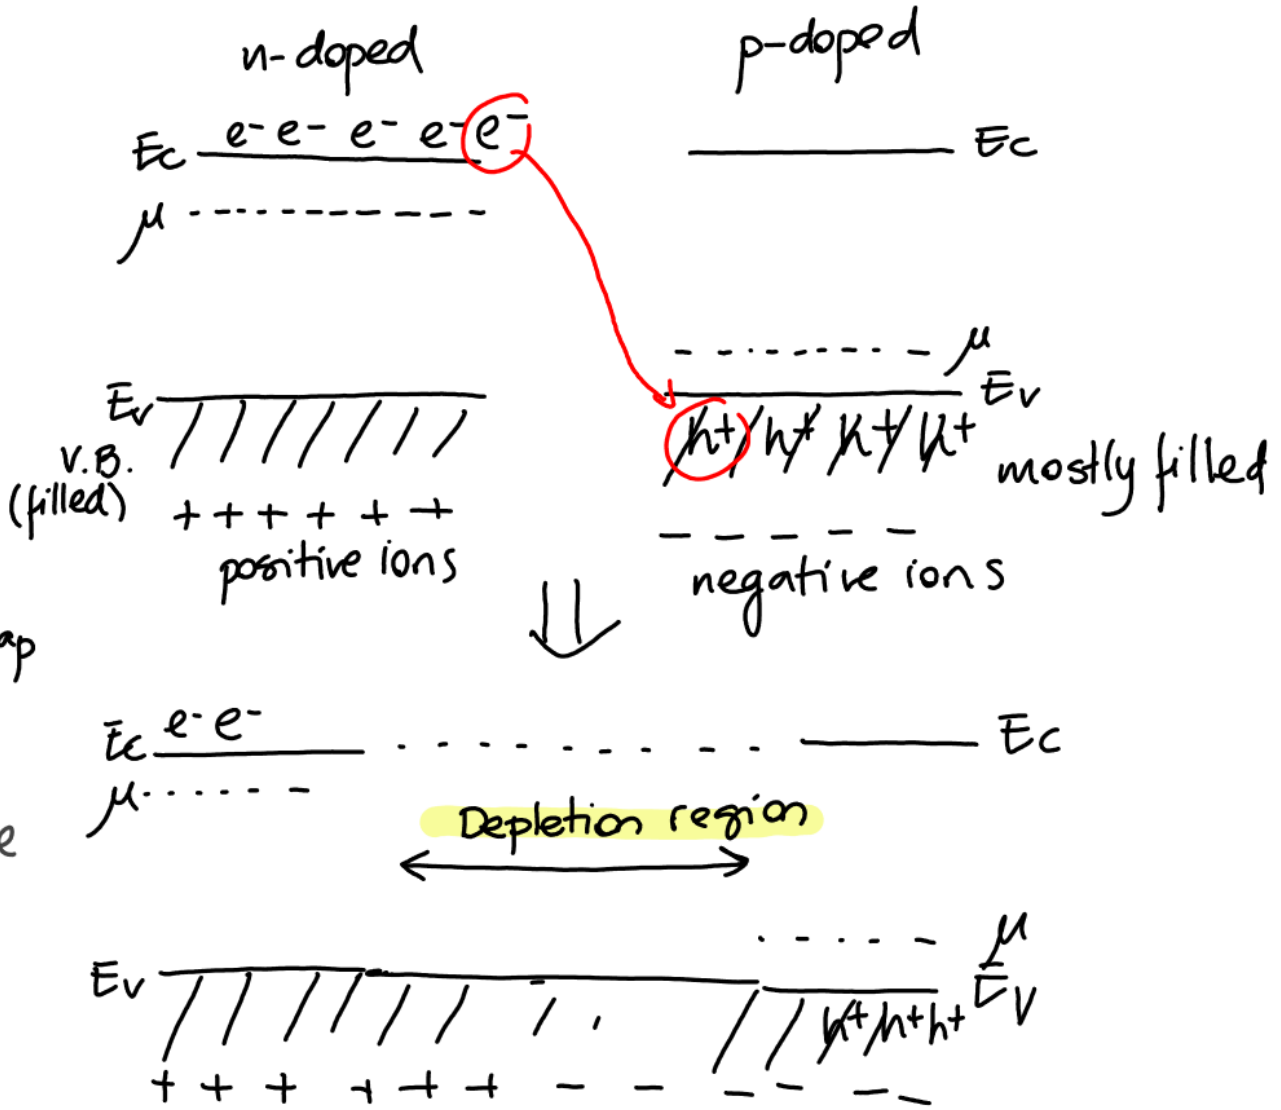 n-doped
p-doped
Ec e⁻ e⁻ e⁻ e⁻ e⁻
Ec
μ
μ
Ev
Ev
V.B.
(filled)
h⁺ h⁺ h⁺ h⁺
mostly filled
+ + + + + +
positive ions
- - - - -
negative ions
Ec e⁻ e⁻
Ec
μ
Depletion region
μ
Ev
Ev
h⁺ h⁺ h⁺
+ + + + + + - - - - - -